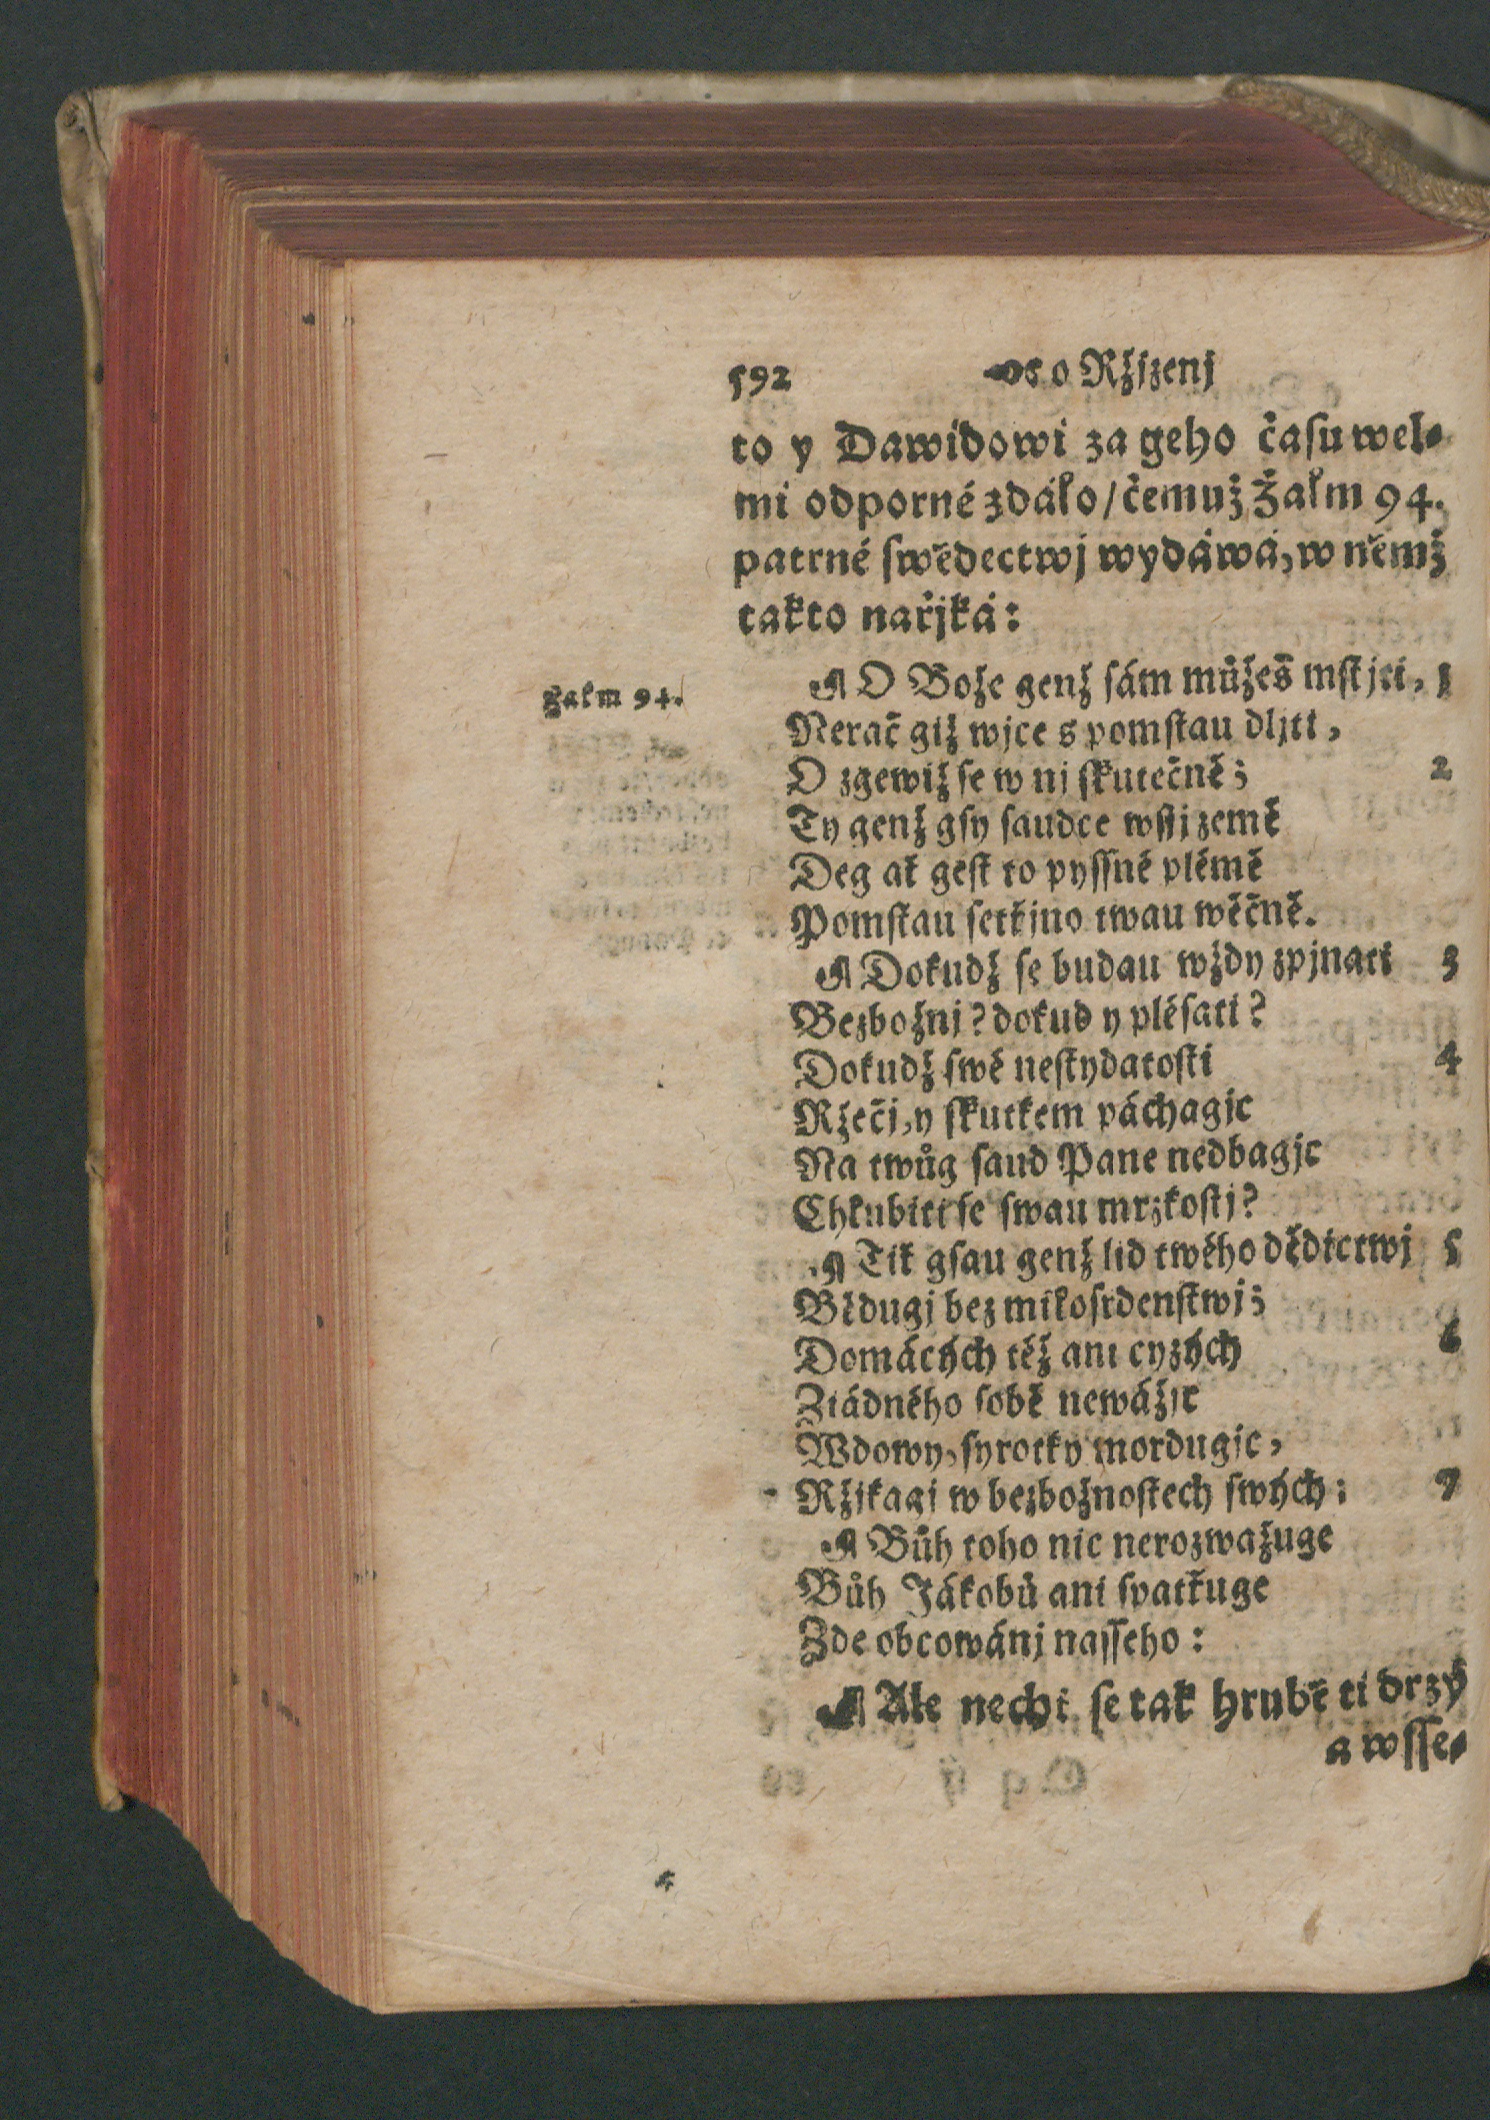 592 o Ržjzenj
to y Dawidowi za geho času wel-
mi odporné zdálo/čemuž Žalm 94.
patrné swědectwj wydáwá, w němž
takto nařjká:
Žalm 94.
¶ O Bože genž sám můžeš mstjti, 1
Nerač giž wjce s pomstau dljti,
O zgewiž se w nj skutečně; 2
Ty genž gsy saudce wsſj země
Deg ať gest to pyssné plémě
Pomstau setřjno twau wěčně.
¶ Dokudž se budau wždy zpjnati 3
Bezbožnj? dokud y plésati?
Dokudž swé nestydatosti 4
Ržečj, y skutkem páchagjc
Na twůg saud Pane nedbagjc
Chlubiti se swau mrzkostj?
¶ Tiť gsau genž lid twého dědictwj 5
Bědugj bez milosrdenstwj;
Domácých též ani cyzých 6
Žiádného sobě newážjc
Wdowy, syrotky mordugjc,
Ržjkagj w bezbožnostech swých: 7
¶ Bůh toho nic nerozwažuge
Bůh Jákobů ani spatřuge
Zde obcowánj nasseho:
¶ Ale nechť se tak hrubě ti drzý
a wsse-